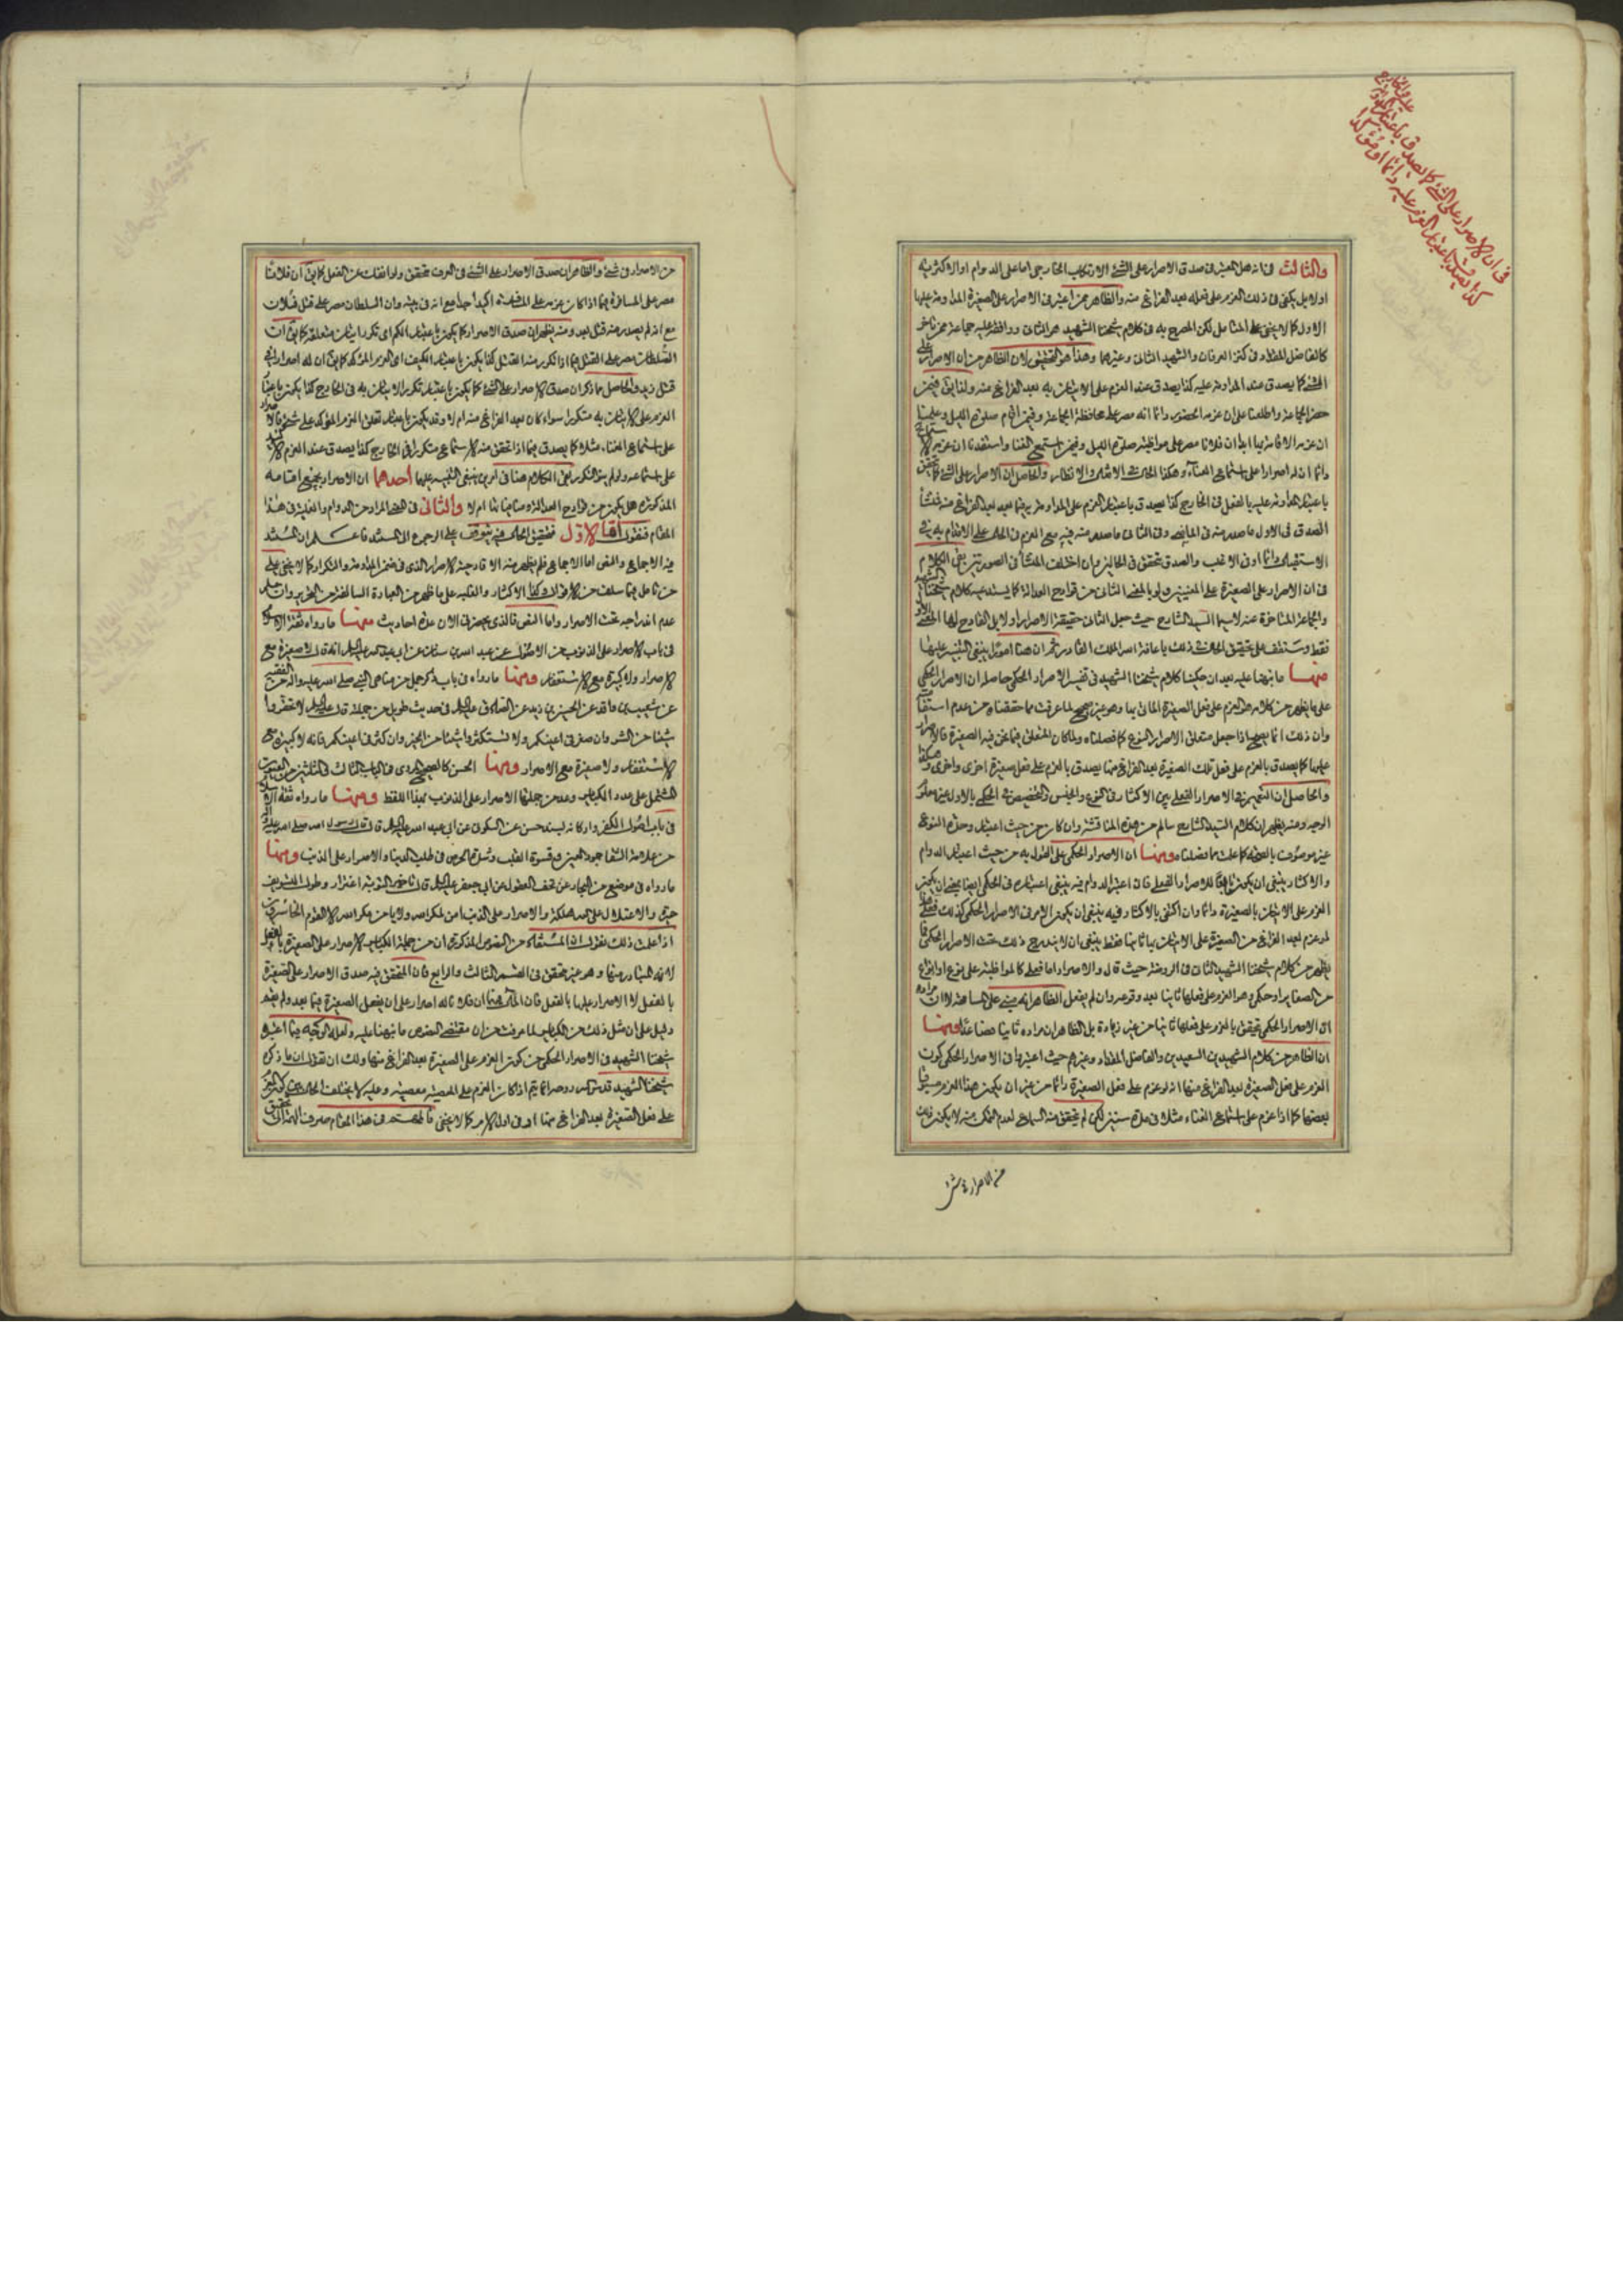 والثالث في انه هل المعتبر في صدق الاصرار على الشئ الارتكاب الخارجي اما على الدوام او الاكثرية
اولا بل يكفي في ذلك العزم على فعله بعد الفراغ منه والظاهر ممن اعتبر في الاصرار على الصغيرة المداومة عليها
الاول كما لا يخفى على المتامل لكن المصرح به في كلام شيخنا الشهيد هو الثاني ووافقه عليه جماعة ممن تاخر
كالفاضل المقداد في كنز العرفان والشهيد الثاني وغيرهما وهذا هو التحقيق لان الظاهر من ان الاصرار على
الشئ كما يصدق عند المداومة عليه كذا يصدق عند العزم على الاتيان به بعد الفراغ منه ولذا يق فيمن
حضر الجماعة واطلعنا على ان عزمه الحضور دائما انه مصر على محافظة الجماعة وفيمن اقام صلوة الليل وعلمنا
ان عزمه الاقامة بها ابدا ان فلانا مصر على مواظبة صلوة الليل وفيمن استمع الغنا واستفدنا ان عزمه الاستماع
دائما ان له اصرارا على استماع الغناء وهكذا الحال في الامثلة والانظار والحاصل ان الاصرار على الشئ كما يتحقق
باعتبار المداومة عليه بالفعل في الخارج كذا يصدق باعتبار العزم على المداومة به فيما بعد بعد الفراغ منه فمنشأ
الصدق في الاول ما صدر منه في الماضي وفي الثاني ما صدر منه فيه مع العزم في الحال على الاقدام به في
الاستقبال دائما او في الاغلب والصدق متحقق في الحالين وان اختلف المنشأ في الصورتين بقى الكلام
في ان الاصرار على الصغيرة على المعنيين ولو بالمعنى الثاني من قوادح العدالة كما يستدعيه كلام شيخنا الشهيد
والجماعة المتاخرة عنه لاسيما السيد الشارح حيث جعل الثاني حقيقة الاصرار او لا بل القادح لها المعنى الاول
فقط وستقف على تحقيق الحال في ذلك باعانة الله الملك القادر ثم ان هنا امورا ينبغي التنبيه عليها
منها ما نبهنا عليه بعد ان حكينا كلام شيخنا الشهيد في تفسير الاصرار الحكمي حاصله ان الاصرار الحكمي
على ما يظهر من كلامه هو العزم على فعل الصغيرة الماتي بها وهو غير صحيح لما عرفت مما حققناه من عدم استقامته
وان ذلك انما يصح اذا جعل متعلق الاصرار النوع كما فصلناه ولما كان المتعلق فيما نحن فيه الصغيرة فالاصرار
عليها كما يصدق بالعزم على فعل تلك الصغيرة بعد الفراغ منها يصدق بالعزم على فعل صغيرة اخرى واخرى وهكذا
والحاصل ان التعميم في الاصرار الفعلي بين الاكثار في النوع والجنس والتخصيص في الحكمي بالاول غير معلوم
الوجه ومنه يظهر ان كلام السيد الشارح سالم من هذه المناقشة وان كان من حيث اعتبار وحدة النوع
غير موصوف بالصحة كما علمت مما فصلناه ومنها ان الاصرار الحكمي على القول به من حيث اعتبار الدوام
والاكثار ينبغي ان يكون تابعا للاصرار الفعلي فان اعتبر الدوام فيه ينبغي اعتباره في الحكمي ايضا بمعنى ان يكون
العزم على الاتيان بالصغيرة دائما وان اكتفى بالاكثار فيه ينبغي ان يكون الامر في الاصرار الحكمي كذلك فعلى هذا
لو عزم بعد الفراغ من الصغيرة على الاتيان بها ثانيا فقط ينبغي ان لا يندرج ذلك تحت الاصرار الحكمي فما
يظهر من كلام شيخنا الشهيد الثاني في الروضة حيث قال والاصرار اما فعلي كالمواظبة على نوع او انواع
من الصغاير او حكمي وهو العزم على فعلها ثانيا بعد وقوعه وان لم يفعل الظاهر انه مبني على المسامحة لا ان مراده
ان الاصرار الحكمي يتحقق بالعزم على فعلها ثانيا من غير زيادة بل الظاهر ان مراده ثانيا فصاعدا ومنها
ان الظاهر من كلام الشهيدين السعيدين والفاضل المقداد وغيرهم حيث اعتبروا في الاصرار الحكمي كون
العزم على فعل الصغيرة بعد الفراغ منها انه لو عزم على فعل الصغيرة دائما من غير ان يكون هذا العزم مسبوقا
ببعضها كما اذا عزم على استماع الغناء مثلا في مدة سنتين لكن لم يتحقق منه السماع لعدم التمكن منه لا يكون ذلك
من الاصرار في شئ
في ان الاصرار على الشئ كما يصدق باعتبار
كذا يصدق باعتبار العزم عليه دائما او
من الاصرار في شئ والظاهر ان صدق الاصرار على الشئ في العرف متحقق ولو انفك عن الفعل كما يق ان فلانا
مصر على المسافرة فيما اذا كان عزمه على المسافرة اكيدا جدا مع انه في بيته وان السلطان مصر على قتل فلان
مع انه لم يصدر منه قتل بعد ومنه يظهر ان صدق الاصرار كما يكون باعتبار الكم اي تكرر اتيان متعلقه كما يق ان
السلطان مصر على القتل فيما اذا تكرر منه القتل كذا يكون باعتبار الكيف اي العزم المؤكد كما يق ان له اصرارا في
قتل زيد والحاصل مما ذكر ان صدق الاصرار على الشئ كما يكون باعتبار تكرر الاتيان به في الخارج كذا يكون باعتبار
العزم على الاتيان به متكررا سواء كان بعد الفراغ منه ام لا وقد يكون باعتبار تعلق العزم المؤكد على شئ فالاصرار
على استماع الغناء مثلا كما يصدق فيما اذا تحقق منه الاستماع متكررا في الخارج كذا يصدق عند العزم الاكيد
على استماعه ولو لم يتكرر بقى الكلام هنا في امرين ينبغي التنبيه عليها احدهما ان الاصرار بجميع اقسامه
المذكورة هل يكون من قوادح العدالة ومنافياتها ام لا والثاني في المراد من الدوام والغلبة في هذا
المقام فنقول اما الاول فتحقيق الحال فيه يتوقف على الرجوع الى المستند فاعلم ان المستند
فيه الاجماع والنص اما الاجماع فلم يظهر منه الا قادحية الاصرار الذي في ضمن المداومة والتكرار كما لا يخفى على
من تامل فيما سلف من الاقوال وكذا الاكثار والغلبة على ما ظهر من العبارة السالفة من التحرير وان
عدم اندراجه تحت الاصرار واما النص فالذي يحضرني الان عدة احاديث منها ما رواه ثقة الاسلام
في باب الاصرار على الذنوب من الاصول عن عبد الله بن سنان عن ابي عبد الله عليه السلام انه قال لا صغيرة مع
الاصرار ولا كبيرة مع الاستغفار ومنها ما رواه في باب ذكر جمل من مناهي النبي صلى الله عليه واله من الفقيه
عن شعيب بن واقد عن الحسين بن زيد عن الصادق عليه السلام في حديث طويل من جملته قال عليه السلام لا تحقروا
شيئا من الشر وان صغر في اعينكم ولا تستكثروا شيئا من الخير وان كثر في اعينكم فانه لا كبيرة مع
الاستغفار ولا صغيرة مع الاصرار ومنها الحسن كالصحيح المروي في الباب الثالث والثلثين من العيون
المشتمل على عدد الكباير وعد من جملتها الاصرار على الذنوب بهذا اللفظ ومنها ما رواه ثقة الاسلام
في باب اصول الكفر واركانه بسند حسن عن السكوني عن ابي عبد الله عليه السلام قال قال رسول الله صلى الله عليه واله
من علامة الشقا جمود العين وقسوة القلب وشدة الحرص في طلب الدنيا والاصرار على الذنب ومنها
ما رواه في موضع من البحار عن تحف العقول عن ابي جعفر عليه السلام قال تاخير التوبة اغترار وطول التسويف
حيرة والاعتلال على الله هلكة والاصرار على الذنب امن لمكر الله ولا يامن مكر الله الا القوم الخاسرون
اذا علمت ذلك نقول ان المستفاد من النصوص المذكورة ان من جملة الكباير الاصرار على الصغيرة بالفعل
لانه المتبادر منها وهو غير متحقق في القسم الثالث والرابع فان المتحقق فيه صدق الاصرار على الصغيرة
بالفعل لا الاصرار عليها بالفعل فان الحال فيهما ان فلانا له اصرار على ان يفعل الصغيرة فيما بعد ولم يقم
دليل على ان مثل ذلك من الكباير لما عرفت من ان مقتضى النصوص ما نبهنا عليه ولعله الوجه فيما اعتبره
شيخنا الشهيد في الاصرار الحكمي من كون العزم على الصغيرة بعد الفراغ منها ولك ان تقول ان ما ذكره
شيخنا الشهيد قدس الله روحه انما يتم اذا كان العزم على المعصية معصية وعليه لا يختلف الحال بين كون العزم
على فعل الصغيرة بعد الفراغ منها او في اول الامر كما لا يخفى فالمهم في هذا المقام صرف الهمة الى تحقيق